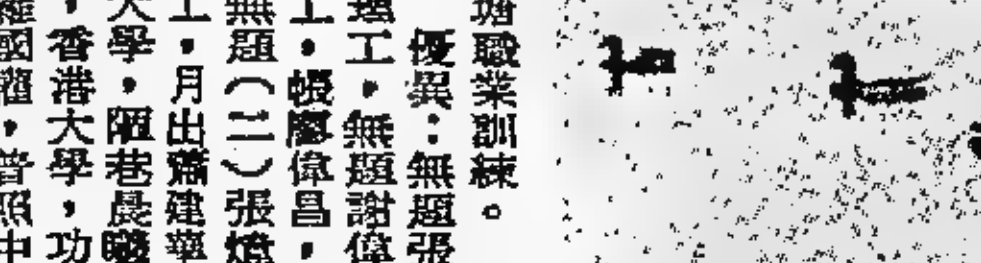 塘職業訓練。
優異：無題張
工，無題謝偉
工，幔廖偉昌，
無題（二）張
工，月出蕭建華
大學，陋巷晨曦
，香港大學，功
國權，普照中